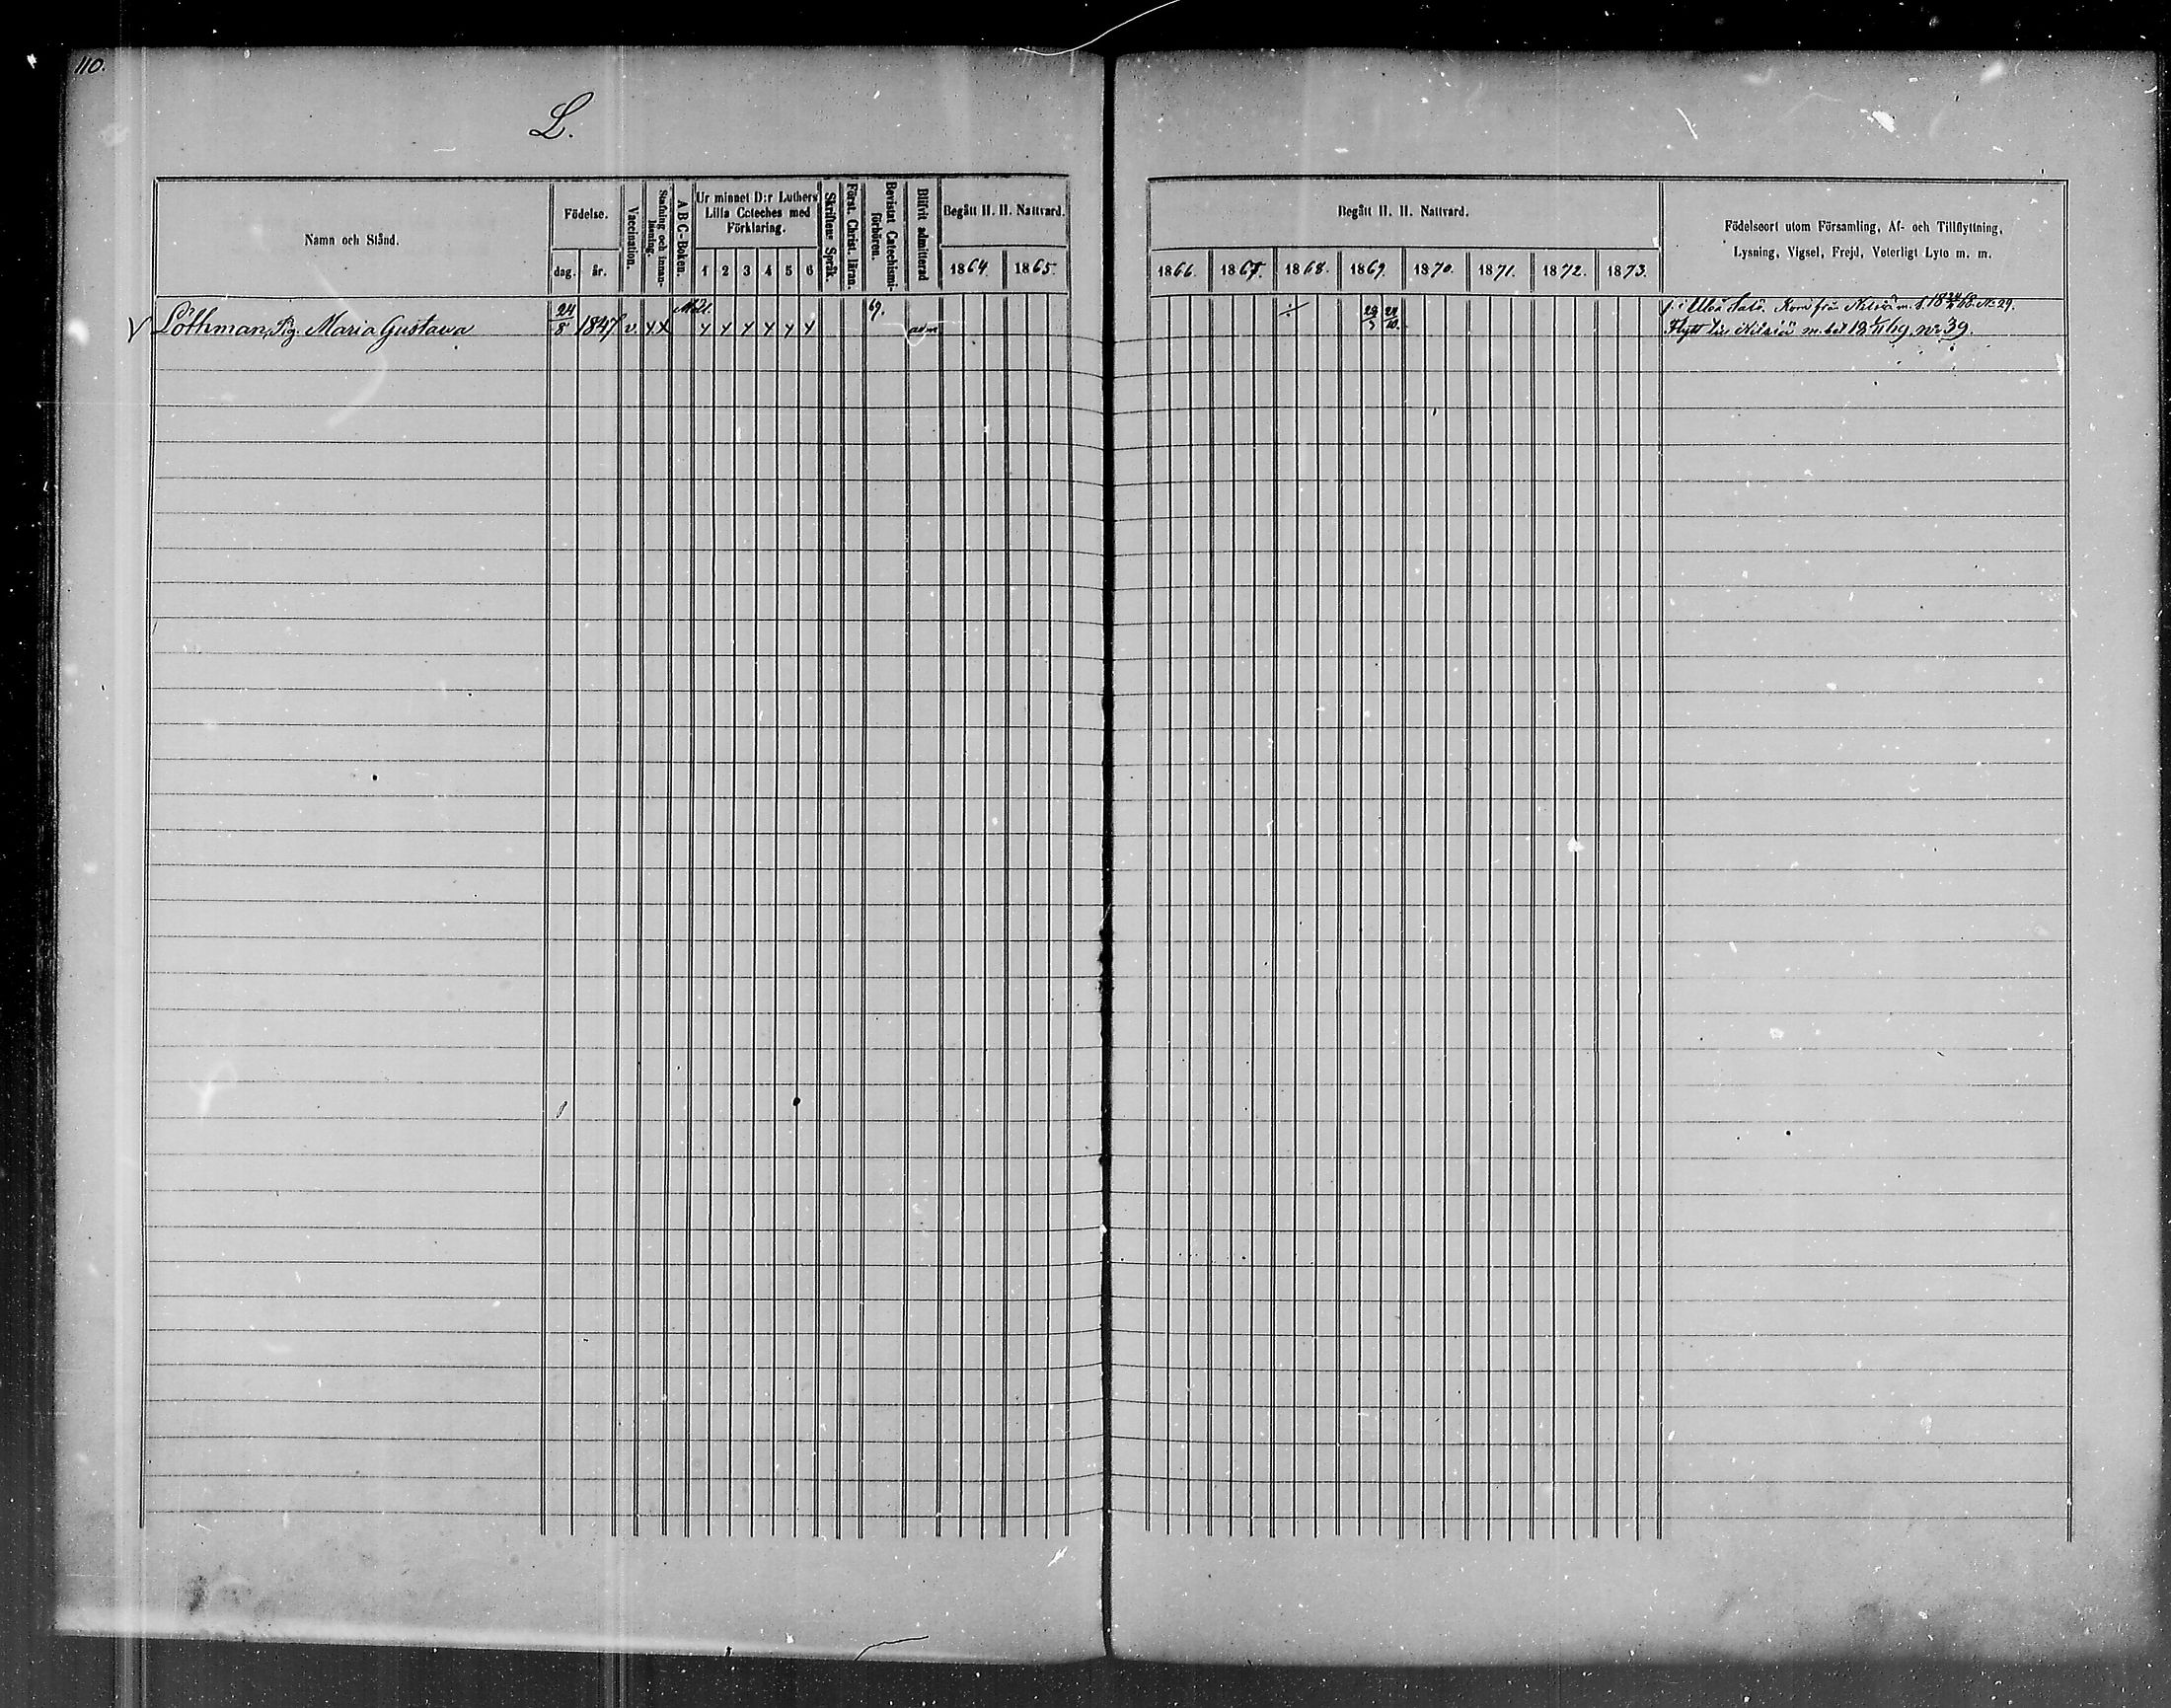 110.
L.
Namn och Stånd.
Födelse.
dag.
år.
Vaccination.
Stafning och innan-
läsning.
A B C-Boken.
Ur minnet D:r Luthers
Lilla Cateches med
Förklaring.
1 2 3 4 5 6
Skriftens Språk.
Först. Christ. läran.
Bevistat Catechismi-
förhören.
Blifvit admitterad
Begått H. H. Nattvard.
1864. 1865.
Begått H. H. Nattvard.
1866. 1867. 1868. 1869. 1870. 1871. 1872. 1873.
Födelseort utom Församling, Af- och Tillflyttning,
Lysning, Vigsel, Frejd, Veterligt Lyte m. m.
Löthman, Pig. Maria Gustava 24/8 1847 v. x x x x x x x x 69. adm
Kom från Nilsiä No 29.
Flytt till Nilsiä m. bet 12/11 69, No 39.